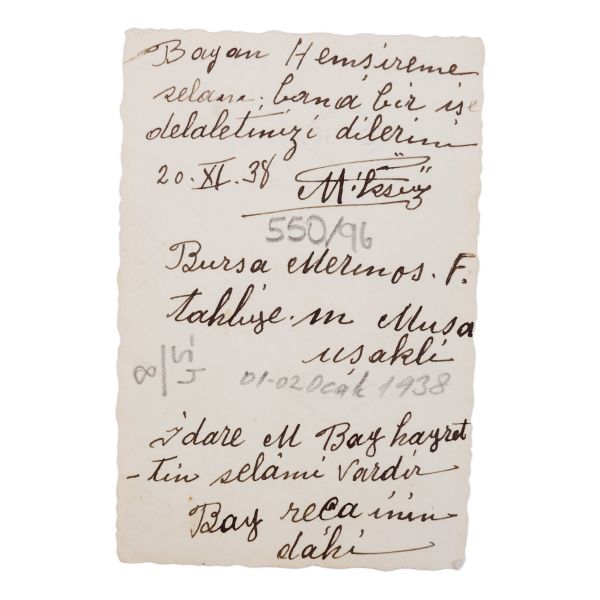 Bayan Hemşireme
selam; bana bir işe
delaletinizi dilerim
20. XI. 38
550/96
Bursa Merinos. F.
tahlize. m Musa
uşakli
01-02 Ocak 1938
idare M Bay hayret
-tin selâmi vardir
Bay recainin
daki